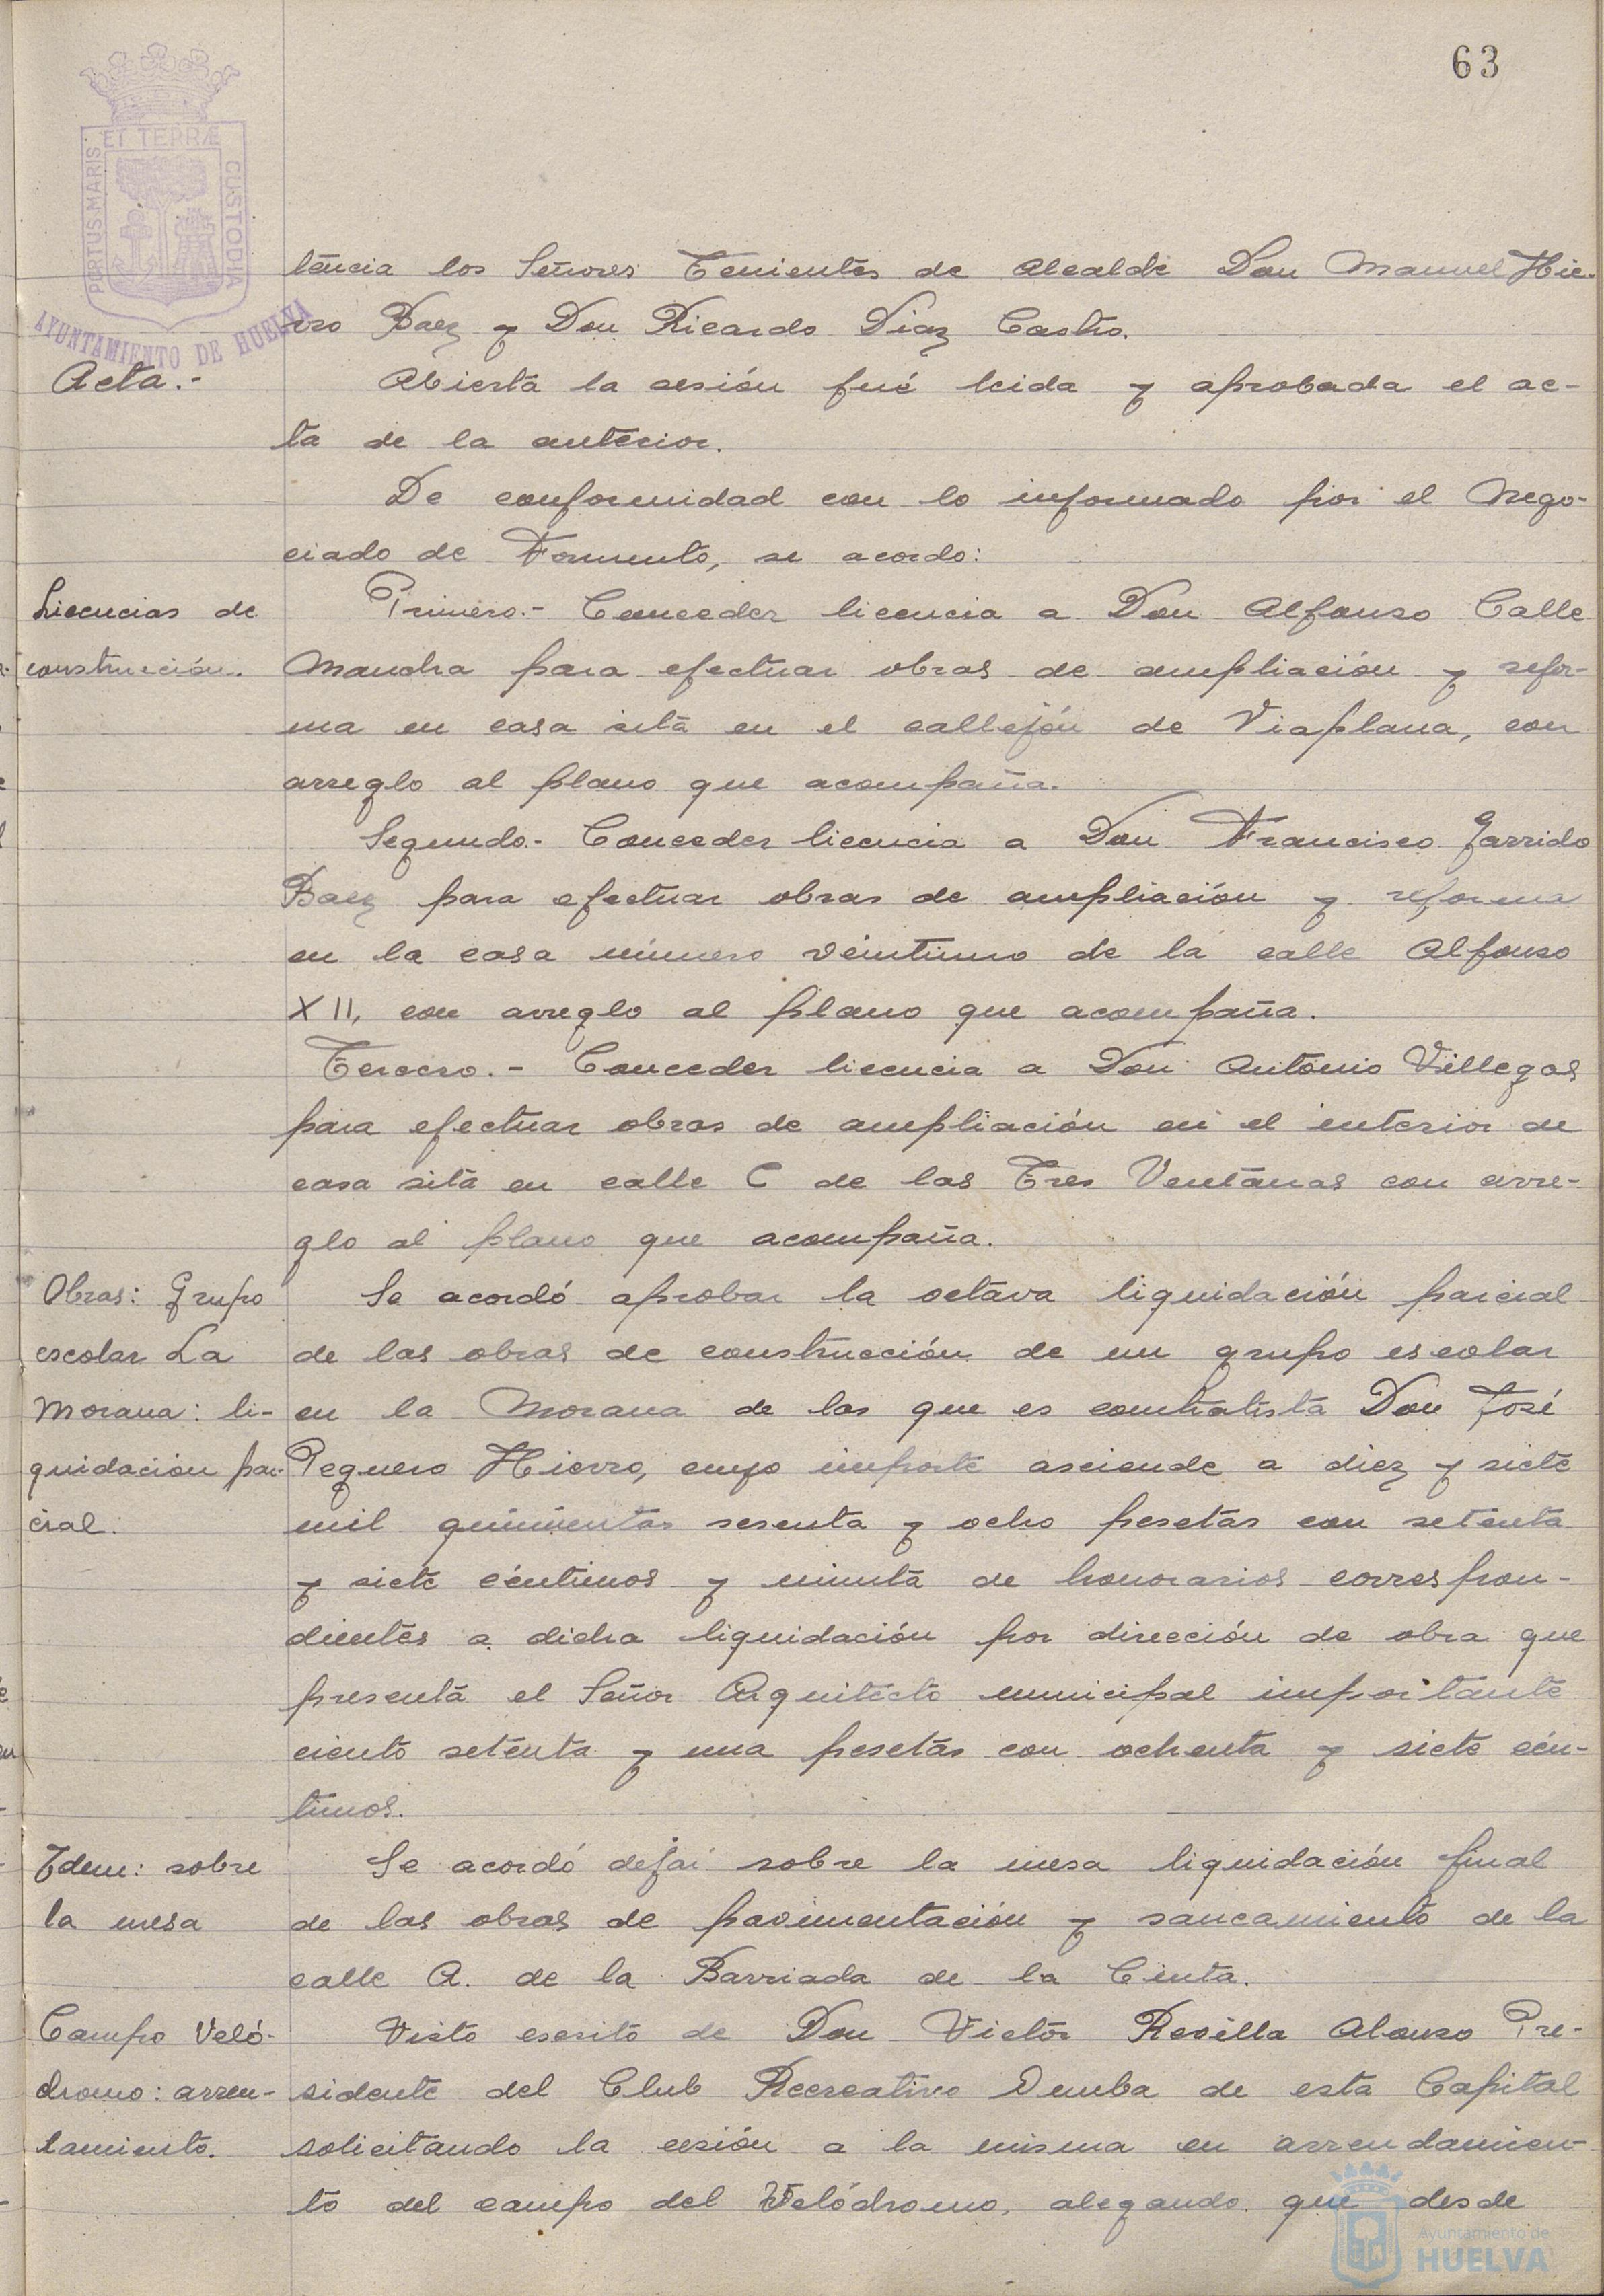 63
PORTUS MARIS
ET TERRÆ
CUSTODIA
AYUNTAMIENTO DE HUELVA
tencia los Señores Tenientes de Alcalde Don Manuel Hie-
rro Baez y Don Ricardo Diaz Castro.
Acta.-
Abierta la sesión fué leida y aprobada el ac-
ta de la anterior.
De conformidad con lo informado por el Nego-
ciado de Fomento, se acordo:
Licencias de
construcción.
Primero.- Conceder licencia a Don Alfonso Calle
Mancha para efectuar obras de ampliación y refor-
ma en casa sita en el callejón de Viaplana, con
arreglo al plano que acompaña.
Segundo.- Conceder licencia a Don Francisco Garrido
Baez para efectuar obras de ampliación y reforma
en la casa número veintiuno de la calle Alfonso
XII, con arreglo al plano que acompaña.
Tercero.- Conceder licencia a Don Antonio Villegas
para efectuar obras de ampliación en el interior de
casa sita en calle C de las Tres Ventanas con arre-
glo al plano que acompaña.
Obras: Grupo
escolar La
Morana: li-
quidación par-
cial.
Se acordó aprobar la octava liquidación parcial
de las obras de construcción de un grupo escolar
en la Morana de las que es contratista Don José
Pequero Hierro, cuyo importe asciende a diez y siete
mil quinientas sesenta y ocho pesetas con setenta
y siete céntimos y minuta de honorarios correspon-
dientes a dicha liquidación por dirección de obra que
presenta el Señor Arquitecto municipal importante
ciento setenta y una pesetas con ochenta y siete cén-
timos.
Idem: sobre
la mesa
Se acordó dejar sobre la mesa liquidación final
de las obras de pavimentación y saneamiento de la
calle A. de la Barriada de la Cinta.
Campo Veló-
dromo: arren-
damiento.
Visto escrito de Don Victor Revilla Alonso Pre-
sidente del Club Recreativo Onuba de esta Capital
solicitando la cesión a la misma en arrendamien-
to del campo del Velódromo, alegando que desde
Ayuntamiento de
HUELVA